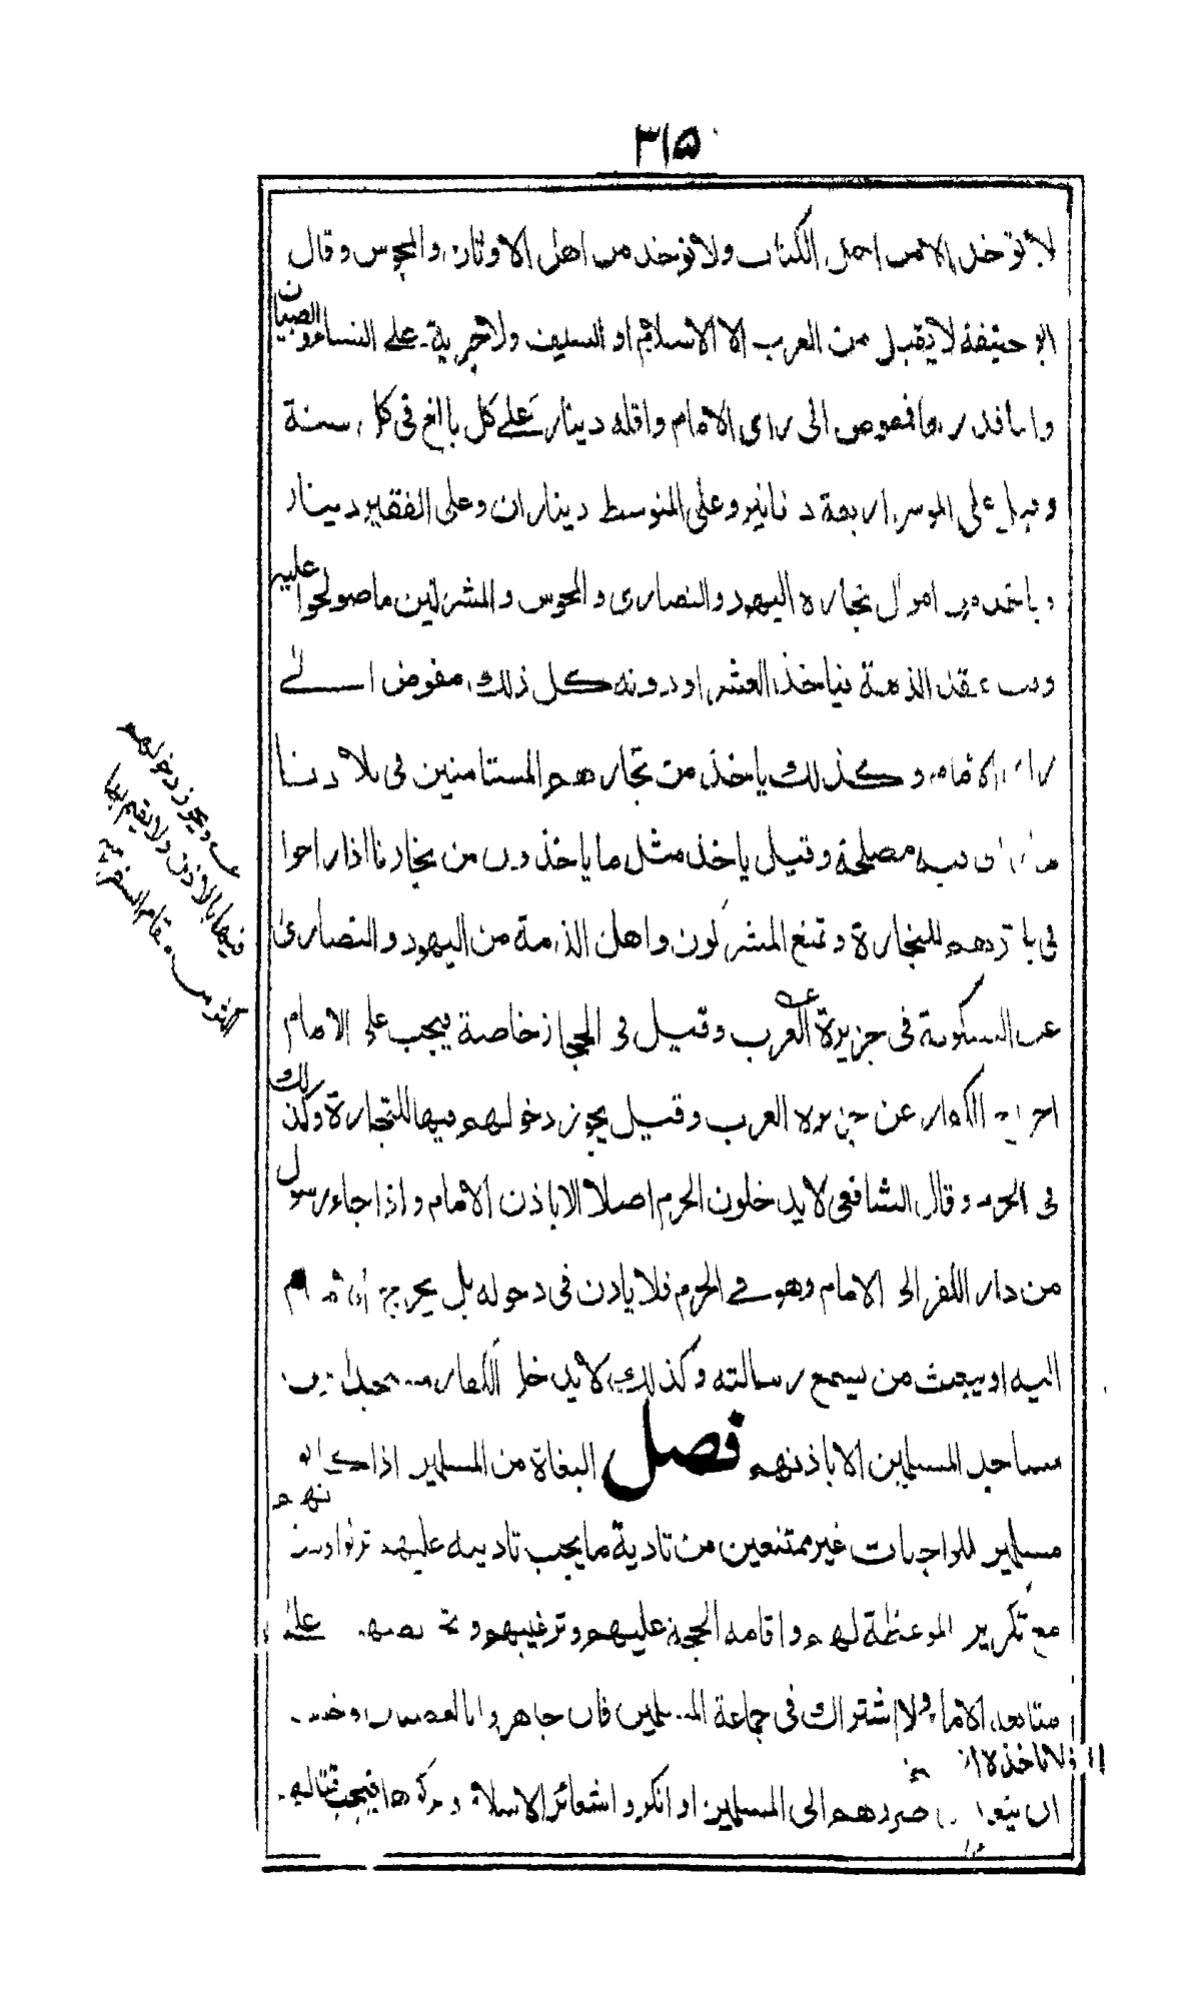 ٣١٥
لا تؤخذ الا من اهل الكتاب ولا تؤخذ من اهل الاوثان والمجوس وقال
ابو حنيفة لا يقبل من العرب الا الاسلام او السيف ولا جزية على النساء والصبيان
واما قدرها فمفوض الى راى الامام واقله دينار على كل بالغ فى كل سنة
وقيل على الموسر اربعة دنانير وعلى المتوسط ديناران وعلى الفقير دينار
وياخذ من اموال تجارة اليهود والنصارى والمجوس والمشركين ما صولحوا عليه
وقت عقد الذمة فياخذ العشر او دونه كل ذلك مفوض الى
راى الامام وكذلك ياخذ من تجارهم المستامنين فى بلادنا
فيه مصلحة وقيل ياخذ مثل ما ياخذون من تجارنا اذا راحوا
فى بلادهم للتجارة وتمنع المشركون واهل الذمة من اليهود والنصارى
عن السكونة فى جزيرة العرب وقيل فى الحجاز خاصة فيجب على الامام
اخراج الكفار عن جزيرة العرب وقيل يجوز دخولهم فيها للتجارة وكذلك
فى الحرم وقال الشافعى لا يدخلون الحرم اصلا الا باذن الامام واذا جاء رسول
من دار الكفر الى الامام وهو فى الحرم فلا ياذن فى دخوله بل يخرج
اليه او يبعث من يسمع رسالته وكذلك لا يدخل الكفار مسجدا من
مساجد المسلمين الا باذنهم فصل البغاة من المسلمين اذا كانوا
مسلمين للواجبات غير ممتنعين من تادية ما يجب تاديبه عليهم
مع تكرير الموعظة لهم واقامة الحجة عليهم وترغيبهم على
متابعة الامام والاشتراك فى جماعة المسلمين فان جاهروا بالعصيان
ضررهم الى المسلمين او انكروا شعائر الاسلام فيجب قتالهم
ويجوز دخولهم
فيها بالاذن ولا يقيم بها
اكثر من مقام السفر